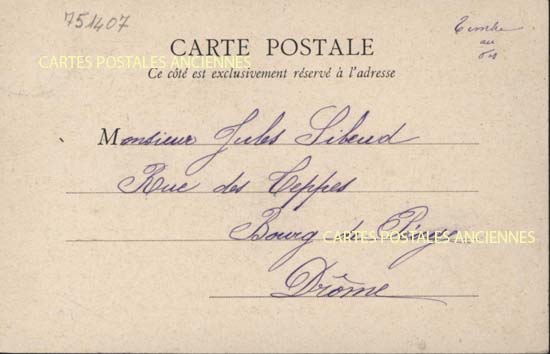 751407
Timbre
au
dos
CARTE POSTALE
CARTES POSTALES ANCIENNES
Ce côté est exclusivement réservé à l'adresse
Monsieur Jules Sibeud
Rue des Teppes
Bourg de Péage
CARTES POSTALES ANCIENNES
Drôme